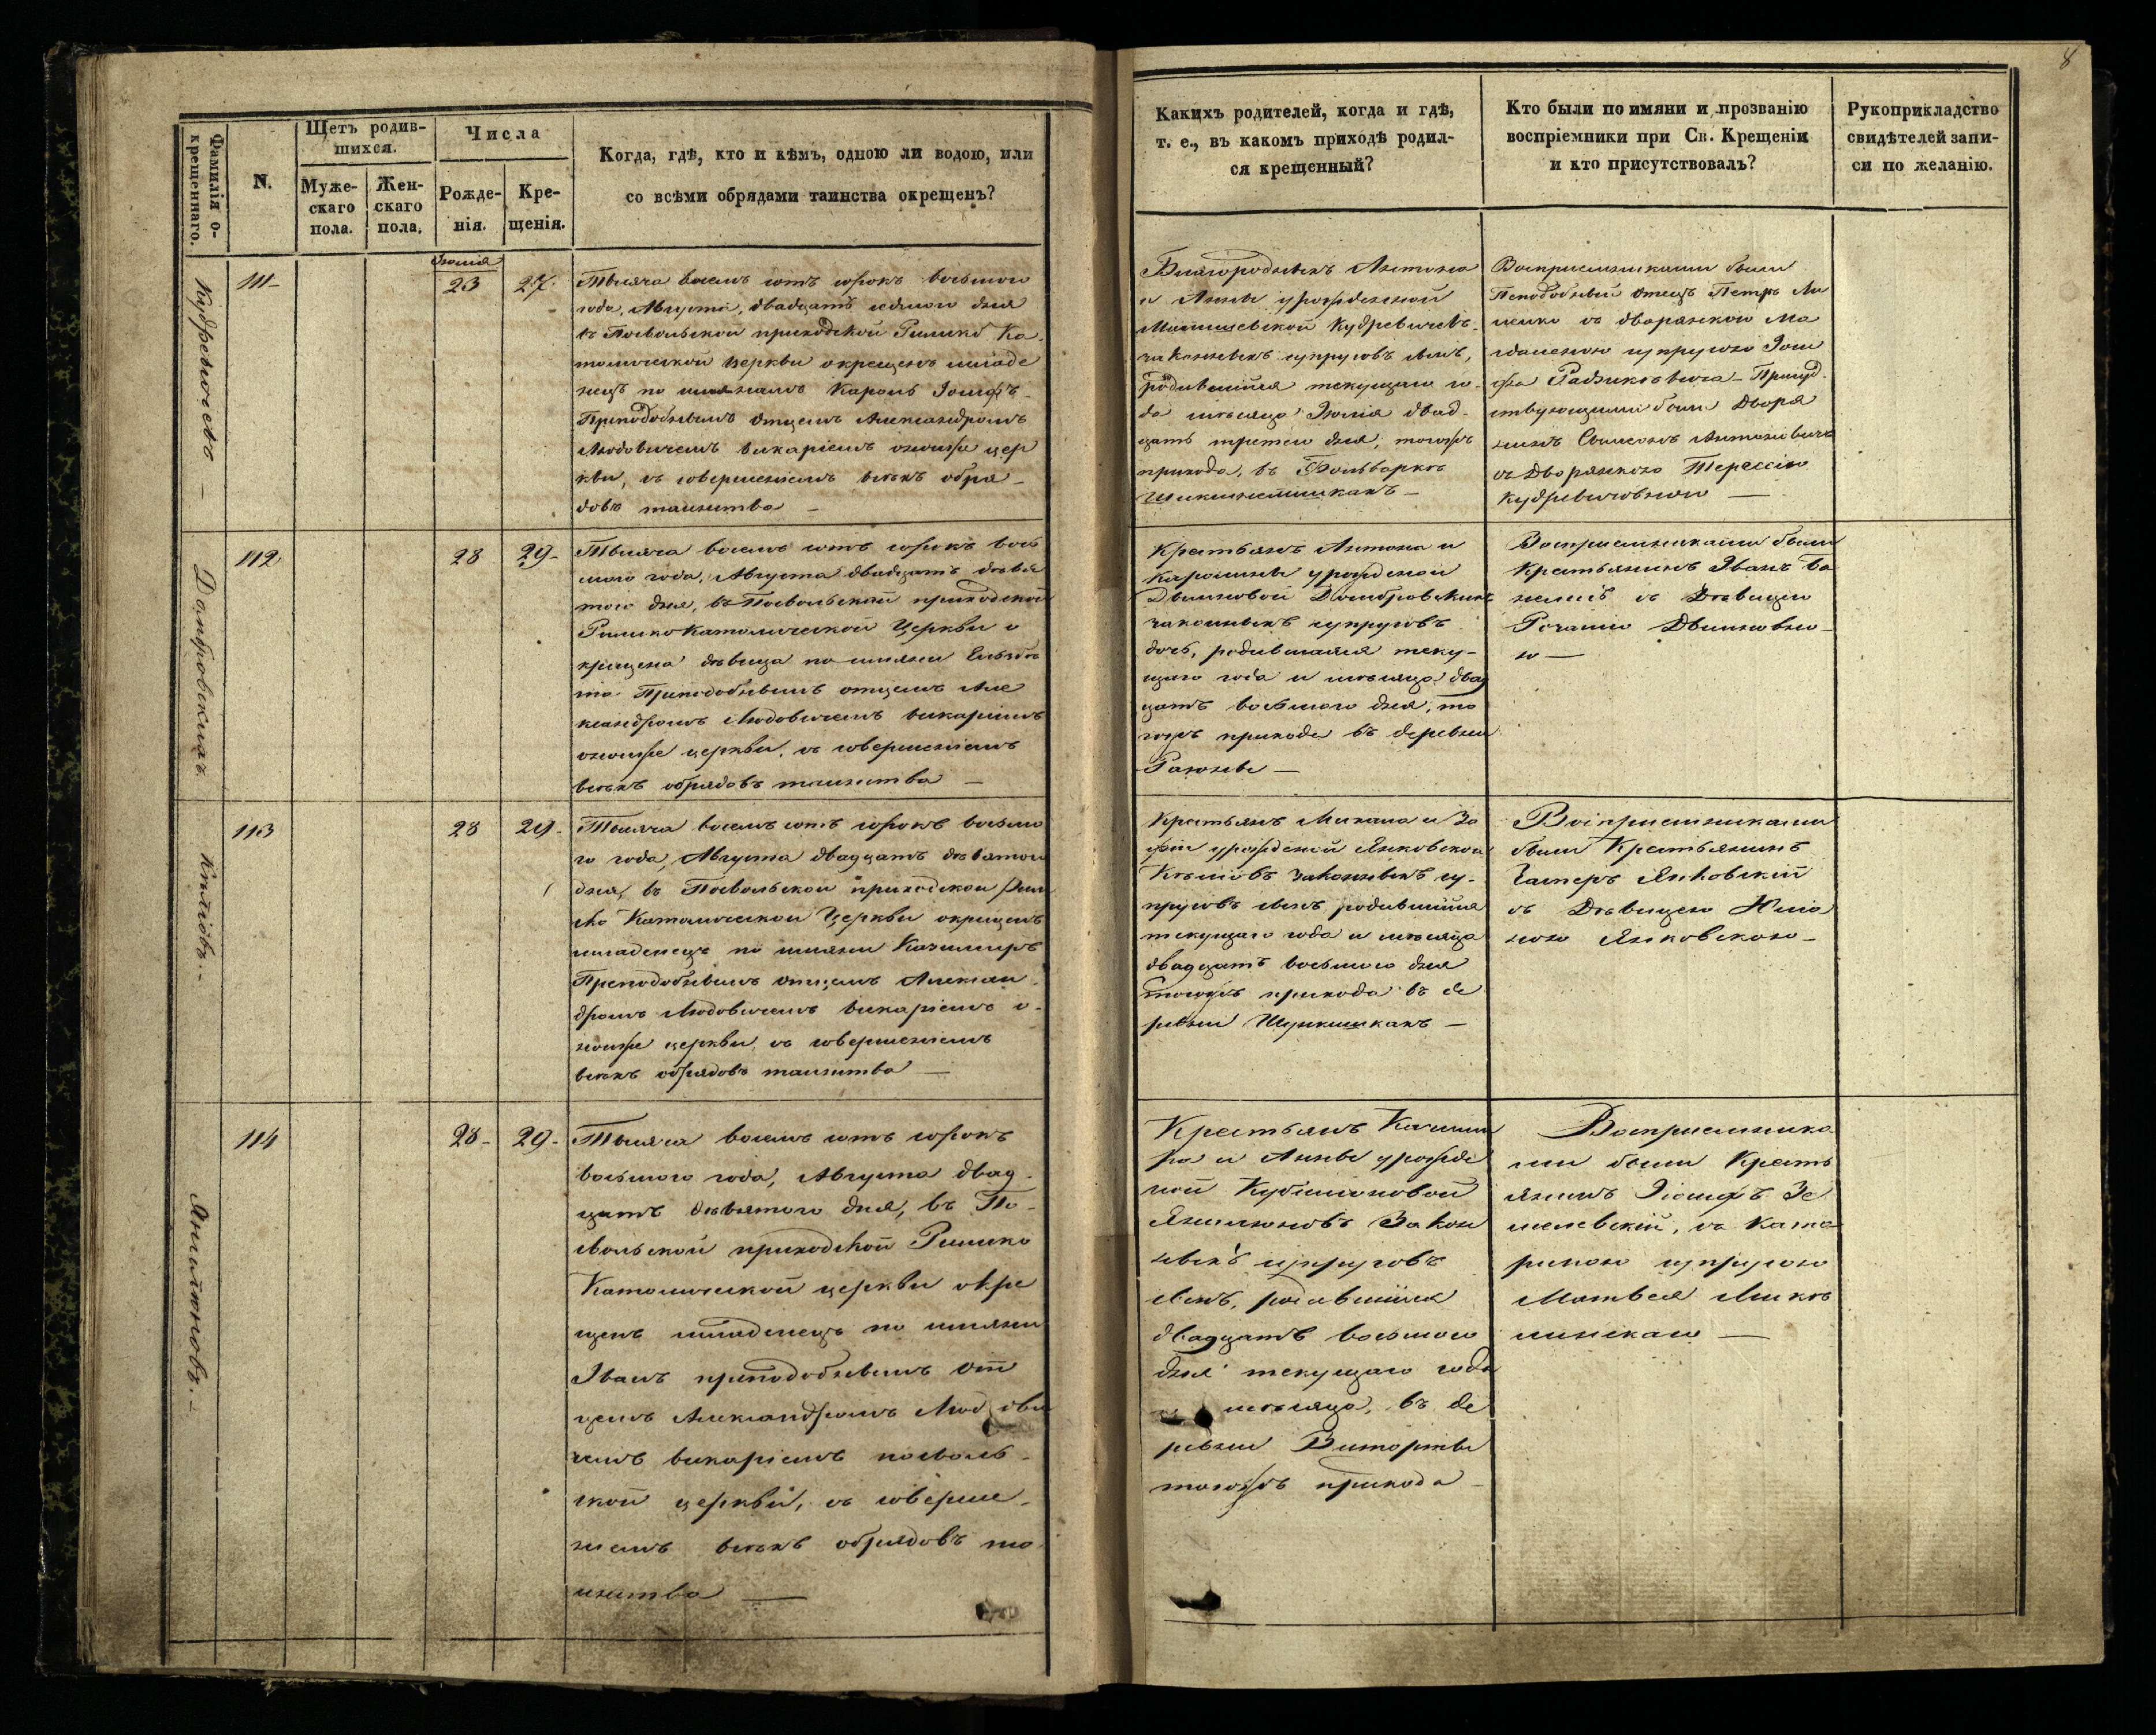 8
Фамилія о-
крещеннаго.
N.
Щетъ родив-
шихся.
Муже-
скаго
пола.
Жен-
скаго
пола.
Числа
Рожде-
нія.
Кре-
щенія.
Когда, гдѣ, кто и кѣмъ, одною ли водою, или
со всѣми обрядами таинства окрещенъ?
Какихъ родителей, когда и гдѣ,
т. е., въ какомъ приходѣ родил-
ся крещенный?
Кто были по имяни и прозванію
воспріемники при Св. Крещеніи
и кто присутствовалъ?
Рукоприкладство
свидѣтелей запи-
си по желанію.
Кудревичевъ —
111-
Іюлія
23
27.
Тысяча восемь сотъ сорокъ восьмого
года, Августа, двадцать седмого дня
въ Посвольской приходской Римско Ка-
толической Церкви окрещенъ младе
нецъ по имянамъ Кароль Іосифъ
Преподобнымъ Отцемъ Александромъ
Людовичемъ викаріемъ оноиже цер
кви, съ совершеніемъ всѣхъ обря-
довъ таинства —
Благородныхъ Антона
и Анны урожденной
Кудревичевъ
законныхъ супруговъ сынъ,
родившійся текущаго го-
да мѣсяца Іюлія двад-
цать третьго дня, тогожъ
прихода, въ Фольваркѣ
Воспріемниками были
Преподобный Отецъ Петръ Ли
ценко съ дворянкою Ма
гдаленою супругою Іоси
фа Радзиковича - Присуд-
ствующими были Дворя
нинъ Симеонъ Антоновичъ
съ Дворянкою Терессіею
Кудревичовною —
Домбровскихъ.
112
28
29-
Тысяча восемь сотъ сорокъ вось
мого года, Августа двадцать девя
того дня, въ Посвольской приходской
Римско Католической Церкви о
крещена дѣвица по имяни Ельзбѣ
та Преподобнымъ отцемъ Але
ксандромъ Людовичемъ викаріемъ
оноиже церкви, съ совершеніемъ
всѣхъ обрядовъ таинства —
Крестьянъ Антона и
Каролины урожденой
Двиновой Домбровскихъ
законныхъ супруговъ
дочь, родившаяся теку-
щаго года и мѣсяца двад
цать восьмого дня, то
гожъ прихода въ деревни
Воспріемниками были
Крестьянинъ Иванъ
съ Дѣвицею
Двиновно
ю —
113
28
29-
Тысяча восемь сотъ сорокъ восьмо
го года, Августа двадцать девятого
дня, въ Посвольской приходской Рим
ско Католической Церкви окрещенъ
младенецъ по имяни Казимиръ
Преподобнымъ Отцемъ Алексан
дромъ Людовичемъ викаріемъ о-
ноиже церкви съ совершеніемъ
всѣхъ обрядовъ таинства —
Крестьянъ Михала и Зо
фіи урожденой Янковской
законныхъ су-
пруговъ сынъ родившійся
текущаго года и мѣсяца
двадцать восьмого дня
тогожъ прихода въ де
ревни
Воспріемниками
были Крестьянинъ
Гасперъ Янковскій
съ Дѣвицею Юлія
ною Янковскою-
114
28-
29-
Тысяча восемь сотъ сорокъ
восьмого года, Августа двад-
цать девятого дня, въ По-
свольской приходской Римско
Католической церкви окре
щенъ младенецъ по имяни
Іванъ преподобнымъ От
цемъ Александромъ Людови
чемъ викаріемъ посволь-
ской церкви, съ соверше-
ніемъ всѣхъ обрядовъ та
инства —
Крестьянъ Казими
ра и Анны урожде
ной Кубилюновой
Закон
ныхъ супруговъ
сынъ, родившійся
двадцать восьмого
дня текущаго года
и мѣсяца, въ де
ревни
тогожъ прихода -
Воспріемника
ми были Кресть
янинъ Іосифъ Зе
с Ката
риною супругою
Матвея